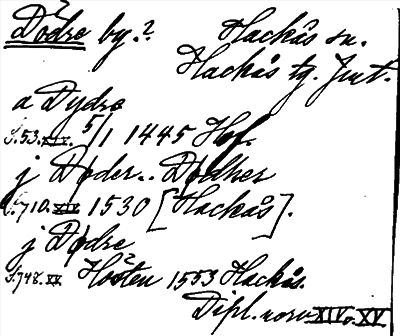 Dödre by.? Hackås sn.
Hackås tg. Jmt.
a Dydræ
S.53.XIV. 5/1 1445 Hof.
j Døder.. Dødher
S.710.XIV 1530 [Hackås].
j Dødre
S.748.XV Hösten 1553 Hackås.
Dipl. norv. XIV. XV.